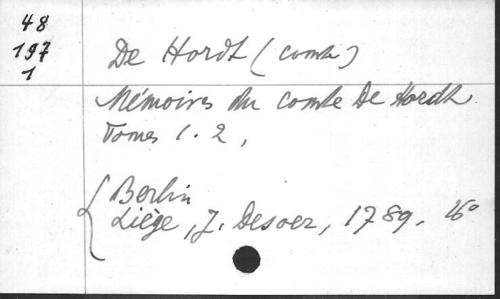 48
197
1
De Hordt (comte)
Mémoires du comte De Hordt
Tomes 1. 2,
Berlin
Liège, J. Desoer, 1789. 16°